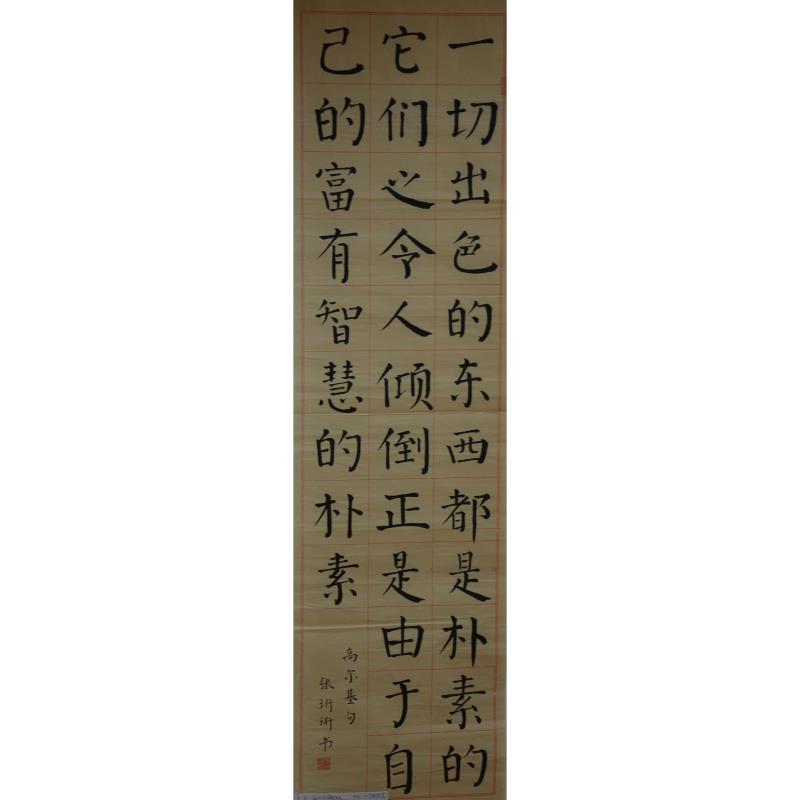 一切出色的东西都是朴素的
它们之令人倾倒正是由于自
己的富有智慧的朴素
高尔基句
张珩珩书